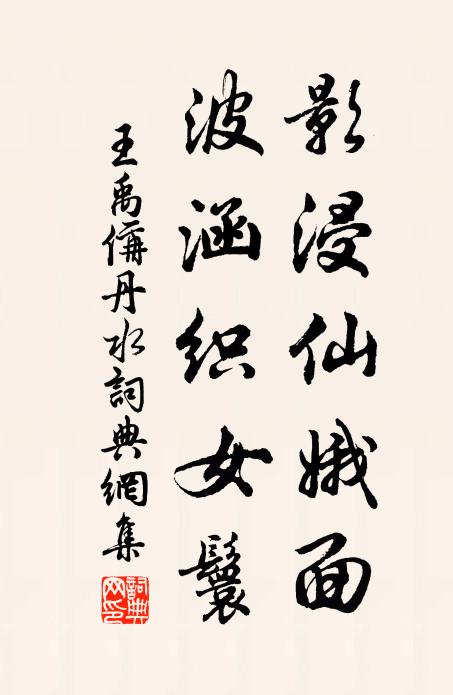 影浸仙娥面
波涵织女鬟
王禹偁丹水詞典網集
詞典网印